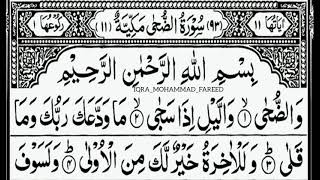 اٰیَاتُهَا ١١ (٩٣) سُوْرَةُ الضُّحٰى مَكِّيَّةٌ (١١) رُكُوْعُهَا ١
بِسْمِ اللّٰهِ الرَّحْمٰنِ الرَّحِيْمِ
IQRA_MOHAMMAD_FAREED
وَالضُّحٰى ۙ﴿١﴾ وَالَّيْلِ اِذَا سَجٰى ۙ﴿٢﴾ مَا وَدَّعَكَ رَبُّكَ وَمَا
قَلٰى ؕ﴿٣﴾ وَلَلْاٰخِرَةُ خَيْرٌ لَّكَ مِنَ الْاُوْلٰى ؕ﴿٤﴾ وَلَسَوْفَ